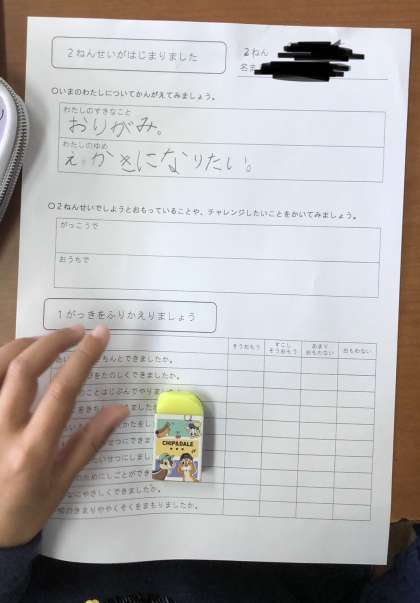 2ねんせいがはじまりました
2ねん
名ま
○いまのわたしについてかんがえてみましょう。
わたしのすきなこと
おりがみ。
わたしのゆめ
え。かきになりたい。
○2ねんせいでしようとおもっていることや、チャレンジしたいことをかいてみましょう。
がっこうで
おうちで
1がっきをふりかえりましょう
そうおもう
すこし
そうおもう
あまり
おもわない
おもわない
ちんとできましたか。
をたのしくできましたか。
ことはじぶんでやりま
をきち
ました
かたをし
せつにできま
いせつにしまし
のためにしごとができ
なにやさしくできましたか。
のきまりややくそくをまもりましたか。
CHIP&DALE